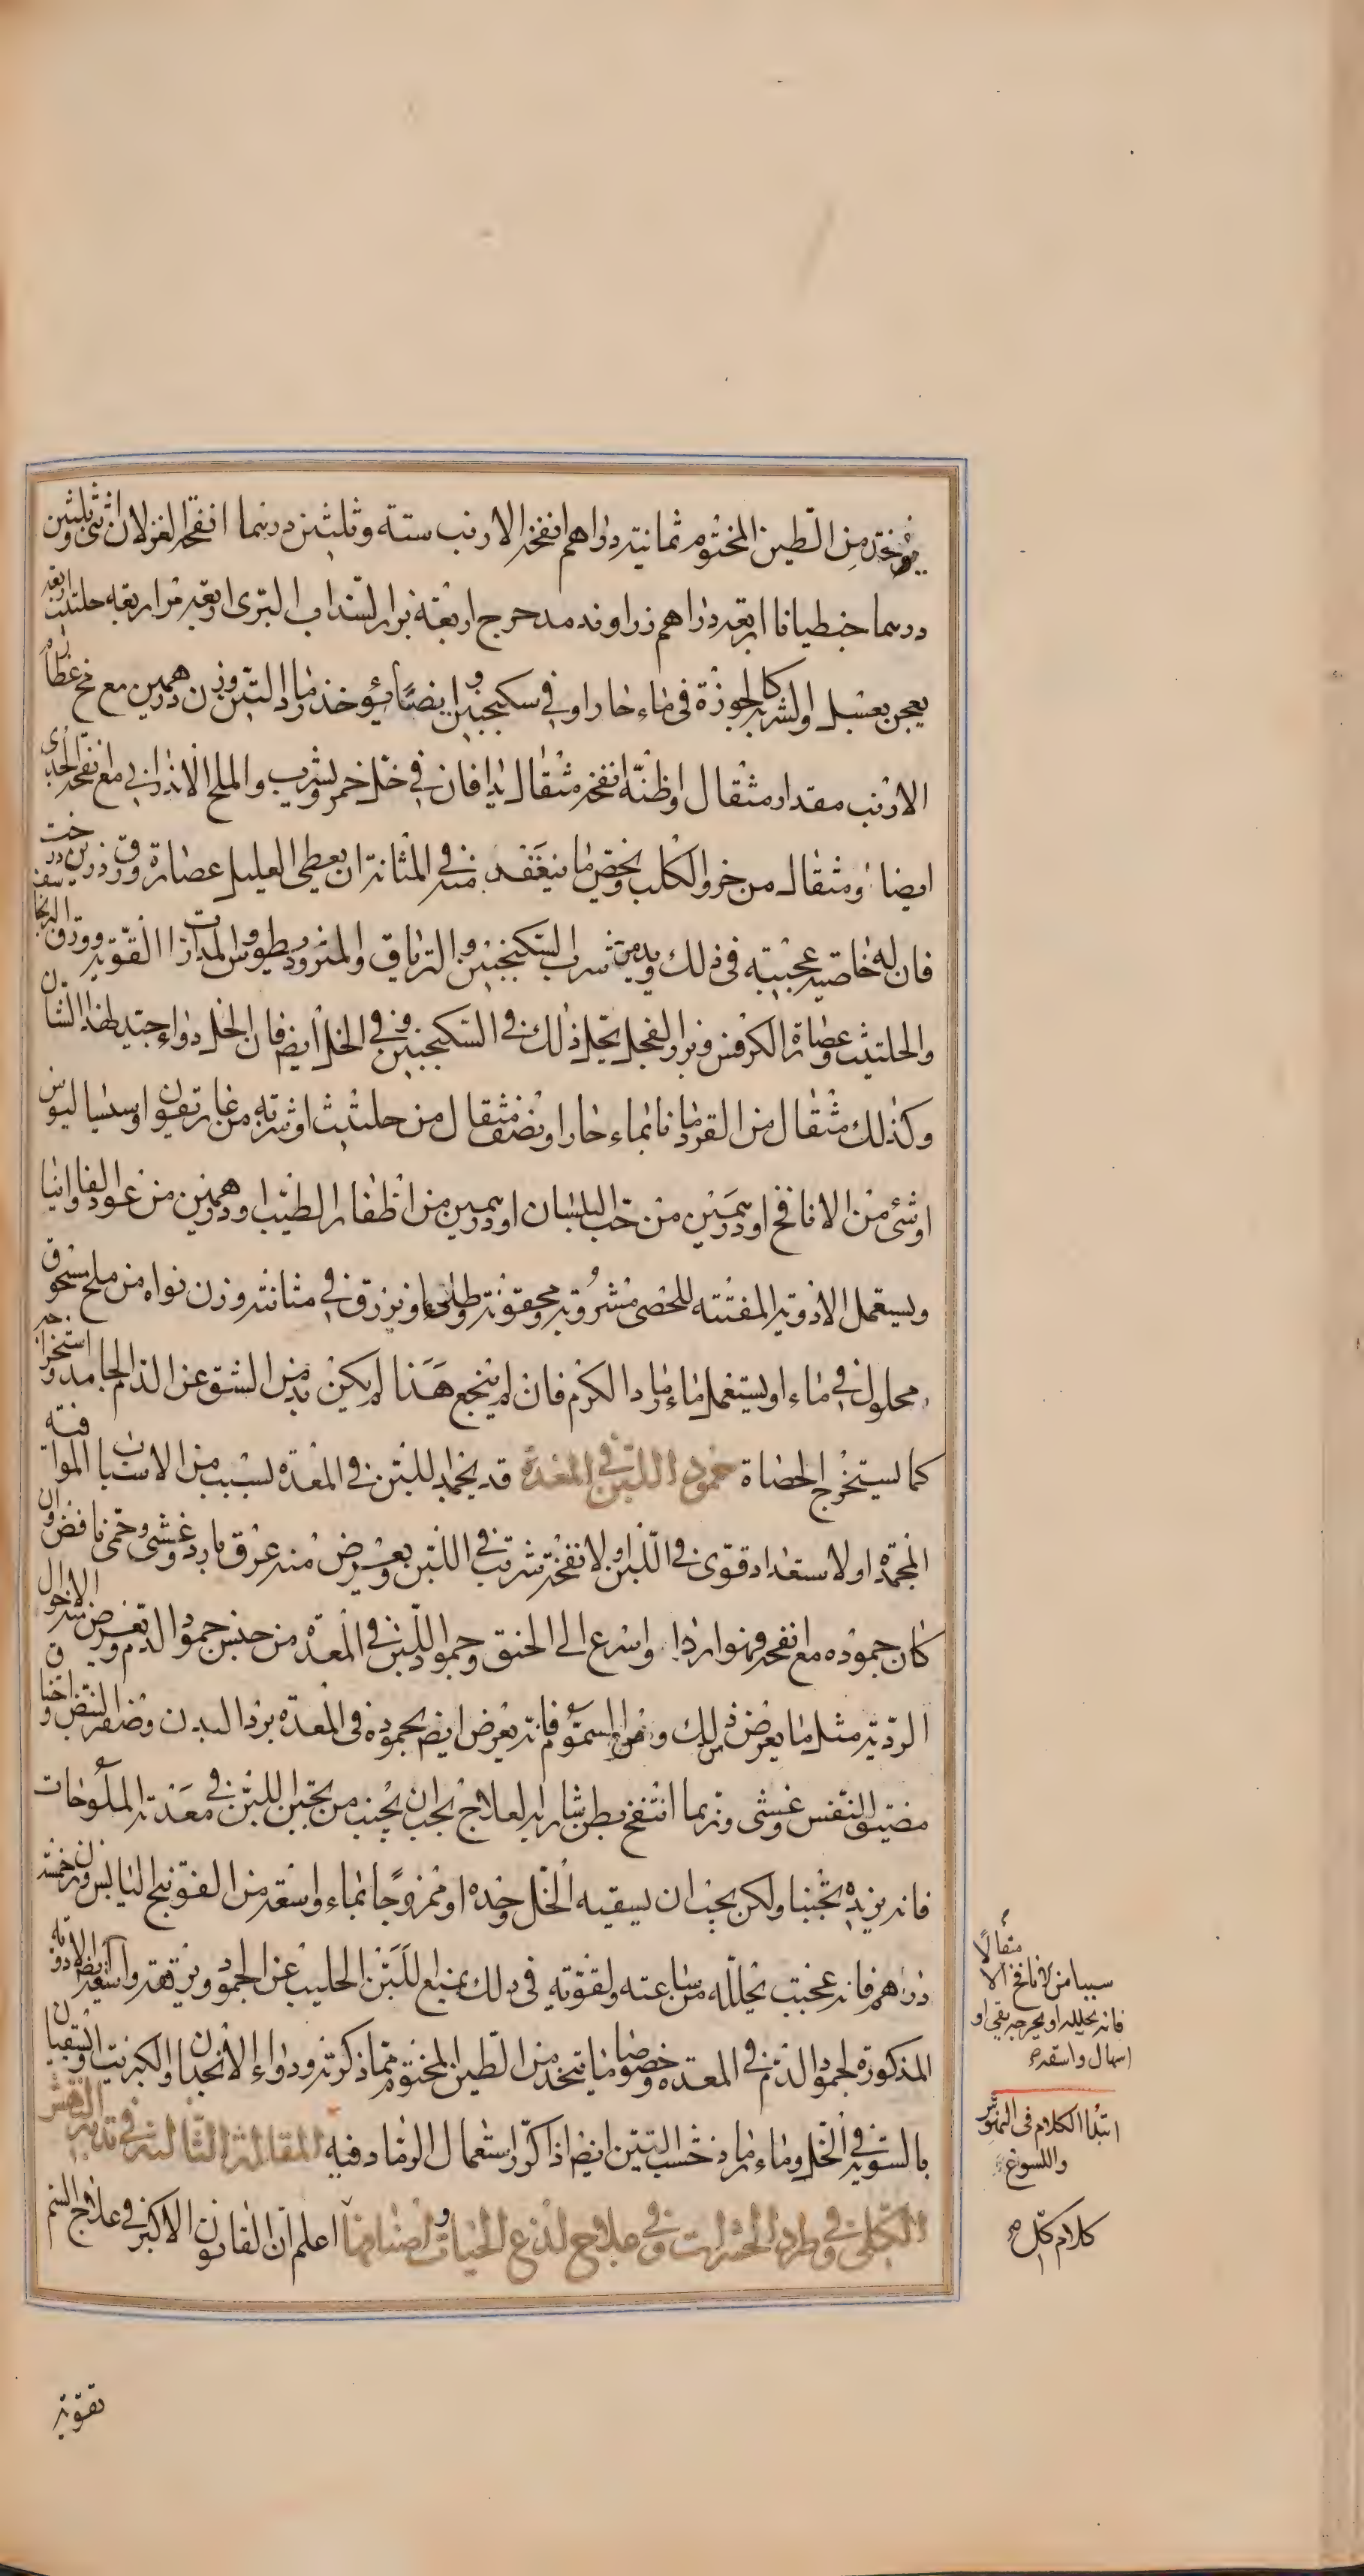 يؤخذ من الطين المختوم ثمانية دراهم انفخة الارنب ستة وثلثين درهما انفخة الغزلان اثنى وثلثين
درهما جنطيانا اربعة دراهم زراوند مدحرج اربعة بزر السذاب البرى اربعة مر اربعة حلتيت اربعة
يعجن بعسل والشربة كالجوزة فى ماء حار او فى سكنجبين وايضا يؤخذ رماد التين وزن درهمين مع مخ عظام
الارنب مقدار مثقال انفخة مثقال يدافان فى خل خمر ويشرب والملح الانذرانى مع انفخة الجدى
ايضا ومثقال من خرو الكلب ويخص ما ينعقد منه فى المثانة ان يعطى العليل عصارة ورق
فان له خاصية عجيبة فى ذلك ويديمن شرب السكنجبين والترياق والمثروديطوس والمدرات القوية وورق البرنجاسف
والحلتيت وعصارة الكرفس وبزر الفجل يحل ذلك فى السكنجبين وفى الخل ايضا فان الخل دواء جيد لهذا الشان
وكذلك مثقال من القردمانا بماء حار او نصف مثقال من حلتيت او شربة من غاريقون او سساليوس
او شئ من الانافخ او درهمين من حب البلسان او درهمين من اظفار الطيب او درهمين من عود الفاوانيا
ويستعمل الادوية المفتتة للحصى مشروبة ومحقونة وطلاء ويزرق فى مثانته وزن نواه من ملح مسحوق
محلول فى ماء او يستعمل ماء رماد الكرم فان لم ينجع هذا لم يكن بد من الشق عن الدم الجامد واستخراجه
كما يستخرج الحصاة جمود اللبن فى المعدة قد يجمد اللبن فى المعدة لسبب من الاسباب الموافقة
المجمدة او لاستعداد قوى فى اللبن او لانفخة شربت فى اللبن ويعرض منه عرق بارد وغشى وحمى نافض وان
كان جموده مع انفخة فهو اردا واسرع الى الخنق وجمود اللبن فى المعدة من جنس جمود الدم ويعرض منه الاحوال
الردية مثل ما يعرض من ذلك ومن السموم فانه يعرض ايضا بجموده فى المعدة برد البدن وصغر النبض واختناق
مضيق للنفس وغشى وربما انتفخ بطن شاربه العلاج يجب ان يجنب من تجبن اللبن فى معدته الملوحات
فانه يزيده تجبنا ولكن يجب ان يسقيه الخل وحده او ممزوجا بماء واسقه من الفوتنج اليابس وزن خمسة
دراهم فانه عجيب يحلله من ساعته ولقوته فى ذلك يمنع اللبن الحليب عن الجمود ويرققه واسقه ايضا الادوية
المذكورة لجمود الدم فى المعدة وخصوصا ما يتخذ من الطين المختوم مما ذكرته ودواء الانجدان والكبريت يسقيان
بالسوية فى الخل وماء رماد خشب التين ايضا اذا كرر استعمال الرماد فيه المقالة الثالثة فى تدبير النهش
الكلى وفى طرد الحشرات وفى علاج لدغ الحيات واصنافها اعلم ان القانون الاكبر فى علاج السم
مثقالا
سببا من الانافخ الا
فانه يحلله او يخرجه بقى او
اسهال واسقه
ابتداء الكلام فى المنهوش
واللسوع
كلام كلى
تقوية